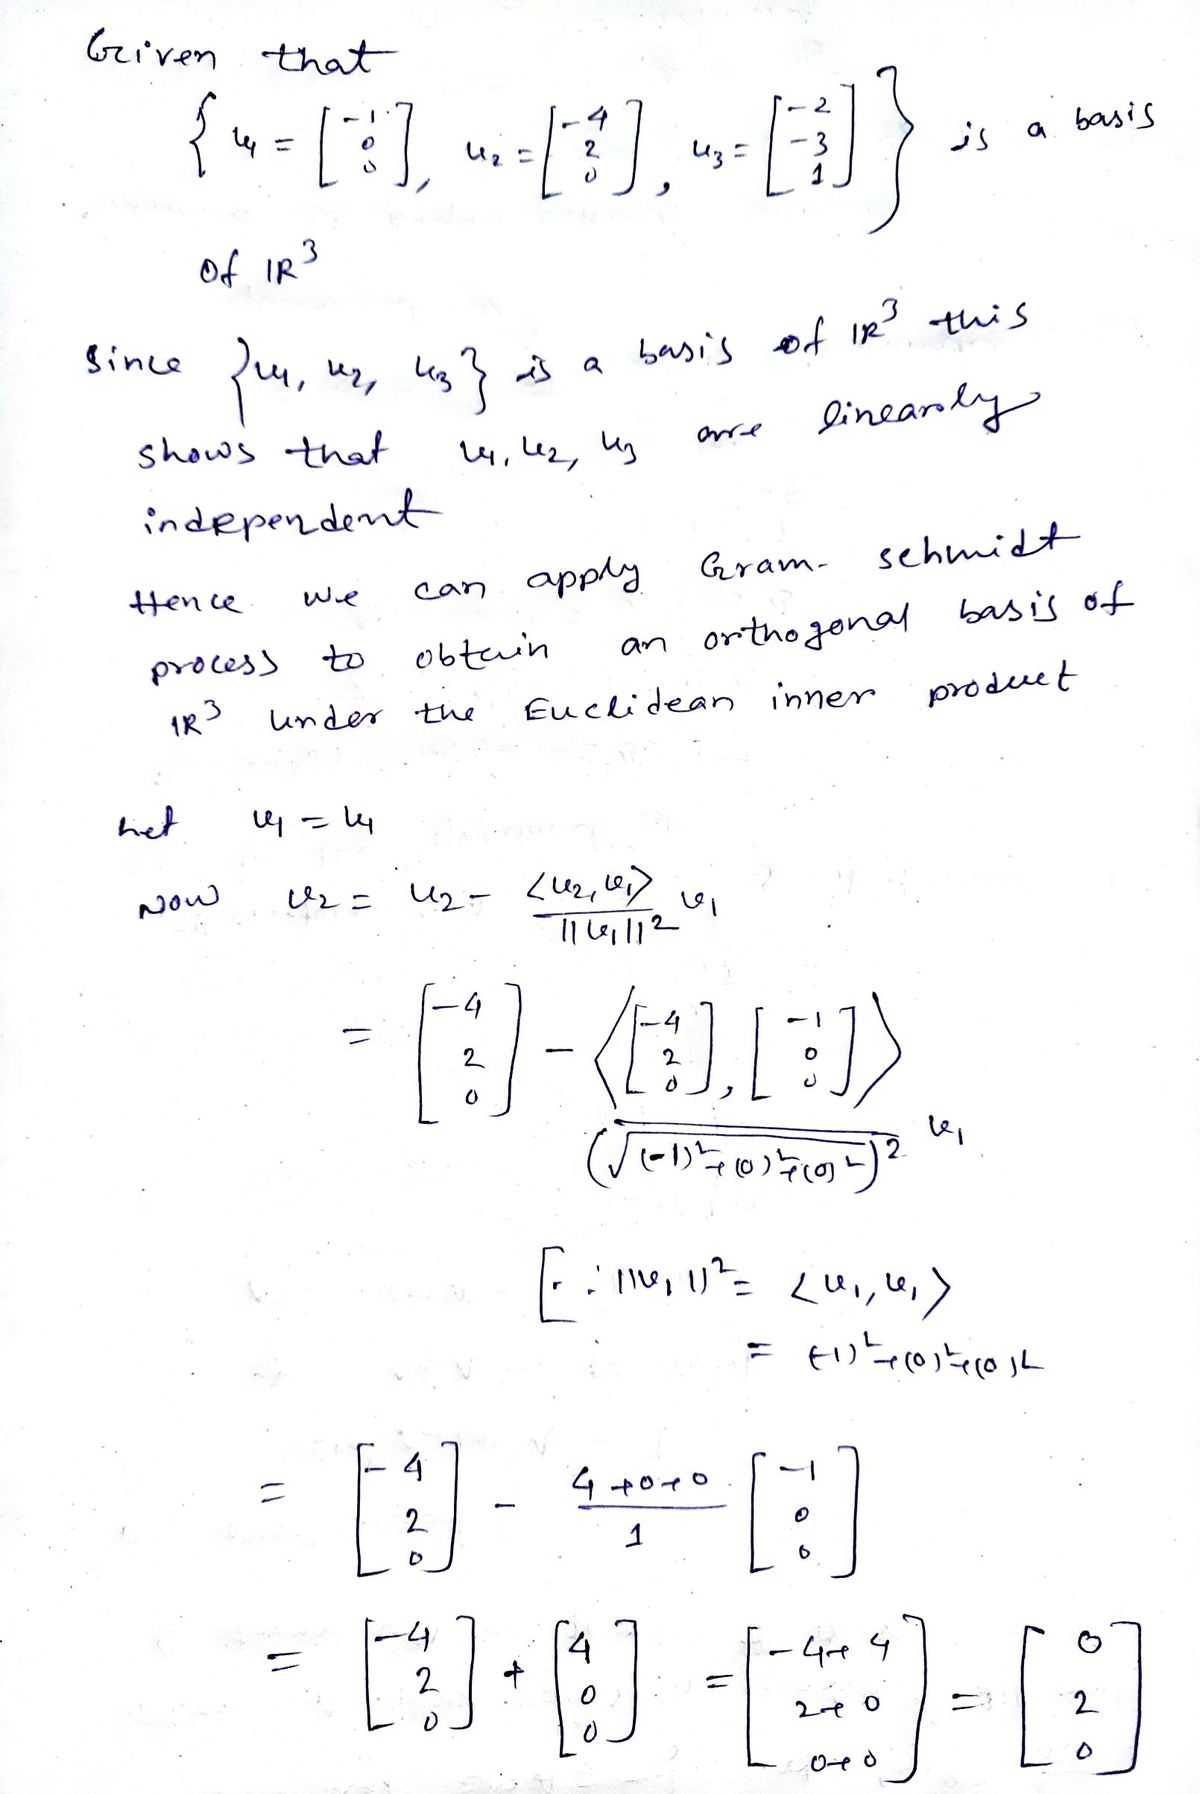 Given that
{ u₁ = [-1 0 0], u₂ = [-4 2 0], u₃ = [-2 -3 1] } is a basis
of IR³
Since {u₁, u₂, u₃} is a basis of IR³ this
shows that u₁, u₂, u₃ are linearly
independent
Hence we can apply Gram-schmidt
process to obtain an orthogonal basis of
IR³ under the Euclidean inner product
Let v₁ = u₁
Now v₂ = u₂ - <u₂, v₁> / ||v₁||² v₁
= [-4 2 0] - <[-4 2 0], [-1 0 0]> / (√(-1)²+(0)²+(0)²)² v₁
[∵ ||v₁||² = <v₁, v₁>
= (-1)²+(0)²+(0)²
= [-4 2 0] - 4+0+0 / 1 [-1 0 0]
= [-4 2 0] + [4 0 0] = [-4+4 2+0 0+0] = [0 2 0]